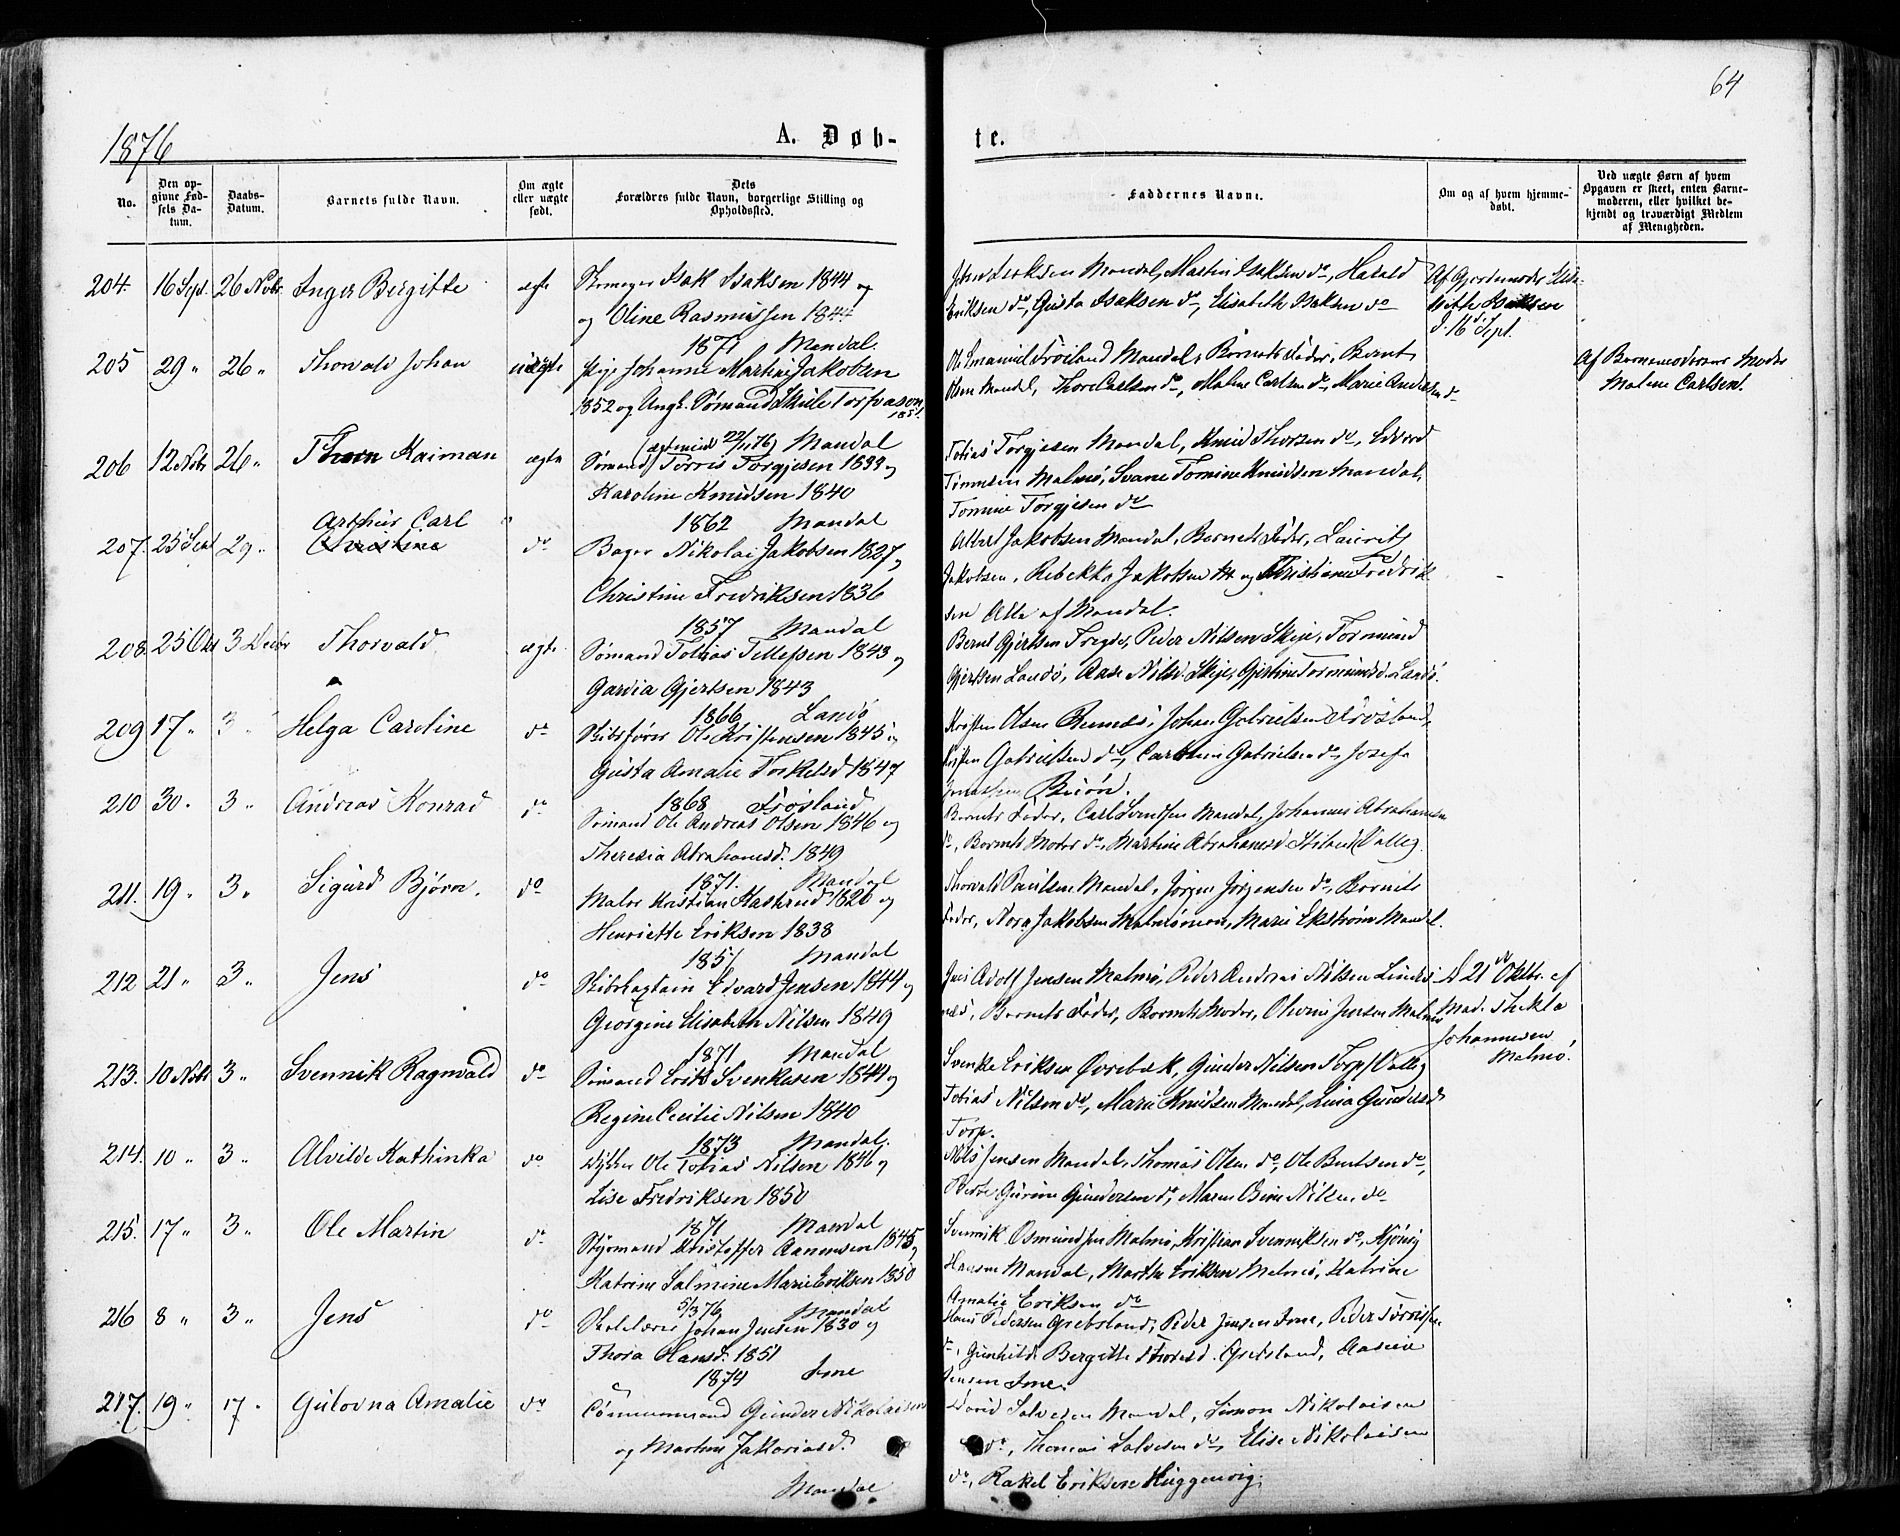 64
1876
A. Døb-
te.
No.
Den op-
givne Fød-
sels Da-
tum.
Daabs-
Datum.
Barnets fulde Navn.
Om ægte
eller uægte
født.
Dets
Forældres fulde Navn, borgerlige Stilling og
Opholdssted.
Faddernes Navne.
Om og af hvem hjemme-
døbt.
Ved uægte Børn af hvem
Opgaven er skeet, enten Barne-
moderen, eller hvilket be-
kjendt og troværdigt Medlem
af Menigheden.
204. 16 Sept. 26 Novbr. Inger Birgitte ægte Isak Isaksen 1844 og
og Oline Rasmussen 1844
1871 Mandal.
Mandal, Martin Isaksen do, Harald
Eriksen do, Gusta Isaksen do, Elisabeth Isaksen do
Af Gjordemoder
Isaksen
d. 16 Sept.
205 29 " 26 " Thorvald Johan uægte Pige Johanne Martine Jakobsen
1852 og Ungk. Sømand Skule Torfvason
1851.
Ole Emanuel Frøiland Mandal, Barnets Fader, Bernt
Olsen Mandal, Thore Carlsen do, Malene Carlsen do, Marie Andersen do
Af Barnemoderens Moder
Malene Carlsen.
206 12 Novbr 26 " Thorn Kaiman ægte (ægteviet 22/11 76) Mandal
Sømand Torris Torgjesen 1833 og
Karoline Knudsen 1840
1862 Mandal
Tobias Torgjesen Mandal, Knud Thorsen do, Edvard
Tønnesen Malmø, Svane Tomine Knudsen Mandal,
Tomine Torgjesen do
207. 25 Sept 29 " Arthur Carl
Christine
do Bager Nikolai Jakobsen 1827 og
Christine Fredriksen 1836
1857 Mandal
Albert Jakobsen Mandal, Barnets Fader, Laurits
Jakobsen, Rebekka Jakobsen og Christiane Fredrik
sen Alle af Mandal.
208. 25 Okt 3 Decbr Thorvald ægte Sømand Tobias Tellefsen 1843 og
Gardia Gjertsen 1843
1866 Landø
Bernt Gjertsen Tregde, Peder Nilsen Skje, Tormund
Gjertsen Landø, Aase Nilsd. Skje, Gjertine Tormundsd. Landø.
209 17 " 3 " Helga Caroline do Skibsfører Ole Kristensen 1845 og
Gusta Amalie Torkelsd 1847
1868 Frøsland
Kristen Olsen Johan Gabrielsen Frøsland,
Gabrielsen do, Gabrielsen do, Josefa
210 30 " 3 " Andreas Konrad do Sømand Ole Andreas Olsen 1846 og
Theresia Abrahamsd. 1849
1871. Mandal
Barnets Fader, Carl Svensen Mandal, Johannes Abrahamsen
do, Barnets Moder do, Martine Abrahamsd
211. 19 " 3 " Sigurd Bjørn. do Maler Kristian Kastrud 1826 og
Henriette Eriksen 1838
1857 Mandal
Thorvald Paulsen Mandal, Jørgen Jørgensen do, Barnets
Fader, Nora Jakobsen Malmømoen, Marie Ekstrøm Mandal.
212 21 " 3 " Jens do Skibskaptain Edvard Jensen 1844 og
Georgine Elisabeth Nilsen 1849
1871 Mandal
Adolf Jensen Malmø, Peder Andreas Nilsen
Barnets Fader, Barnets Moder, Olevine Jensen Malmø
D. 21de Oktbr. af
Mad. Thekla
Johannesen
Malmø.
213. 10 Novbr 3 " Svennik Ragnvald do Sømand Erik Svenkesen 1844 og
Regine Cecilie Nilsen 1840
1873 Mandal.
Svenke Eriksen Øvrebøk, Gunder Nilsen Torp
Tobias Nilsen do, Marie Knudsen Mandal, Lina Gundersd
Torp.
214. 10 " 3 " Alvilde Kathinka do Ole Tobias Nilsen 1846 og
Lise Fredriksen 1850
1871 Mandal
Nils Jensen Mandal, Thomas Olsen do, Ole Berntsen do,
Gurine Gundersen do, Maren Nilsen do
215. 17 " 3 " Ole Martin do Styrmand Kristoffer Aanensen 1845 og
Katrine Salmine Marie Eriksen 1850
5/3 76 Mandal
Svennik Osmundsen Malmø, Kristian Svenniksen do,
Hansen Mandal, Marthe Eriksen Malmø, Katrine
Amalie Eriksen do
216 8 " 3 " Jens do Skolelærer Johan Jensen 1830 og
Thora Hansd. 1851
1874 Ime
Hans Pedersen Grebsland, Peder Jensen Ime, Peder Torrisen
do, Gunhild Bergitte Grebsland,
Jensen Ime.
217. 19 " 17 " Gulovna Amalie do Tømmermand Gunder Nikolaisen
og Martine Zakariasd.
Mandal
David Salvesen Mandal, Simon Nikolaisen
do, Thomas Salvesen do, Elise Nikolaisen
do, Rakel Eriksen Huggenvig.